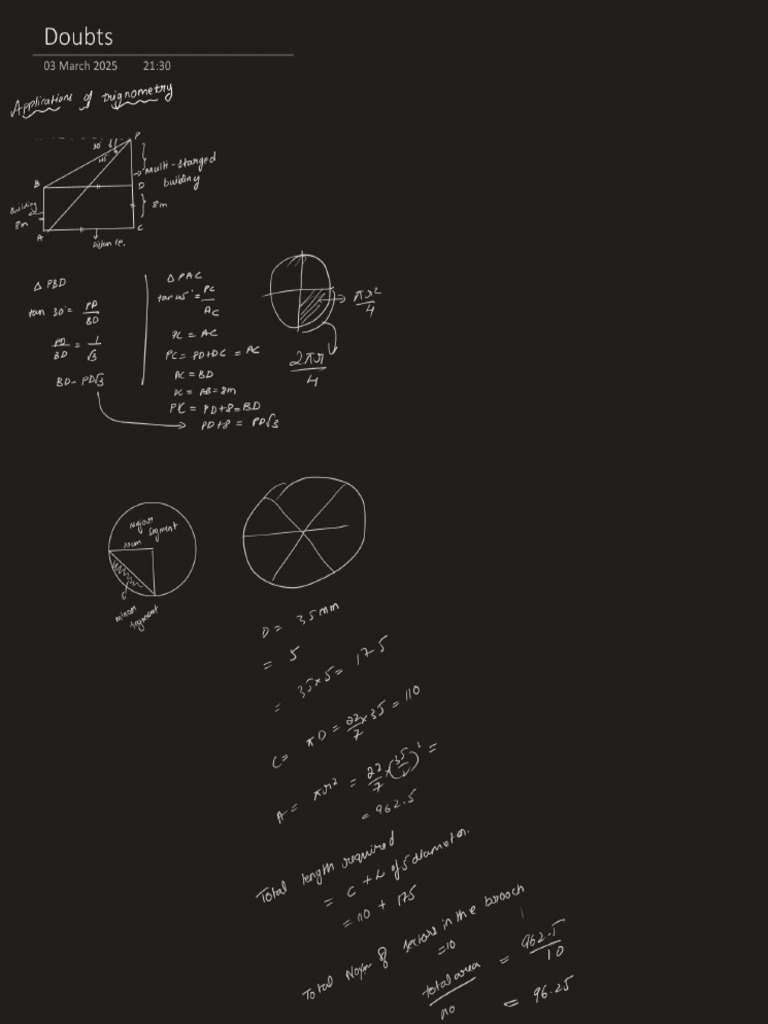 Doubts
03 March 2025 21:30
Applications of trignometry
P
30°
45°
Multi-storged
building
B
D
8m
Building
8m
A
C
Δ PBD
tan 30° = PD/BD
PD/BD = 1/√3
BD = PD√3
Δ PAC
tan 45° = PC/AC
PC = AC
PC = PD+DC = AC
AC = BD
DC = AB = 8m
PC = PD+8 = BD
PD+8 = PD√3
πr²/4
2πr/4
Major
segment
minor
segment
D = 35mm
= 5
= 35×5 = 175
C = πD = 22/7 × 35 = 110
A = πr² = 22/7 × (35/2)² =
= 962.5
Total length required
= C + L of 5 diameter.
= 110 + 175
Total No of sectors in the brooch
= 10
total area/no = 962.5/10
= 96.25